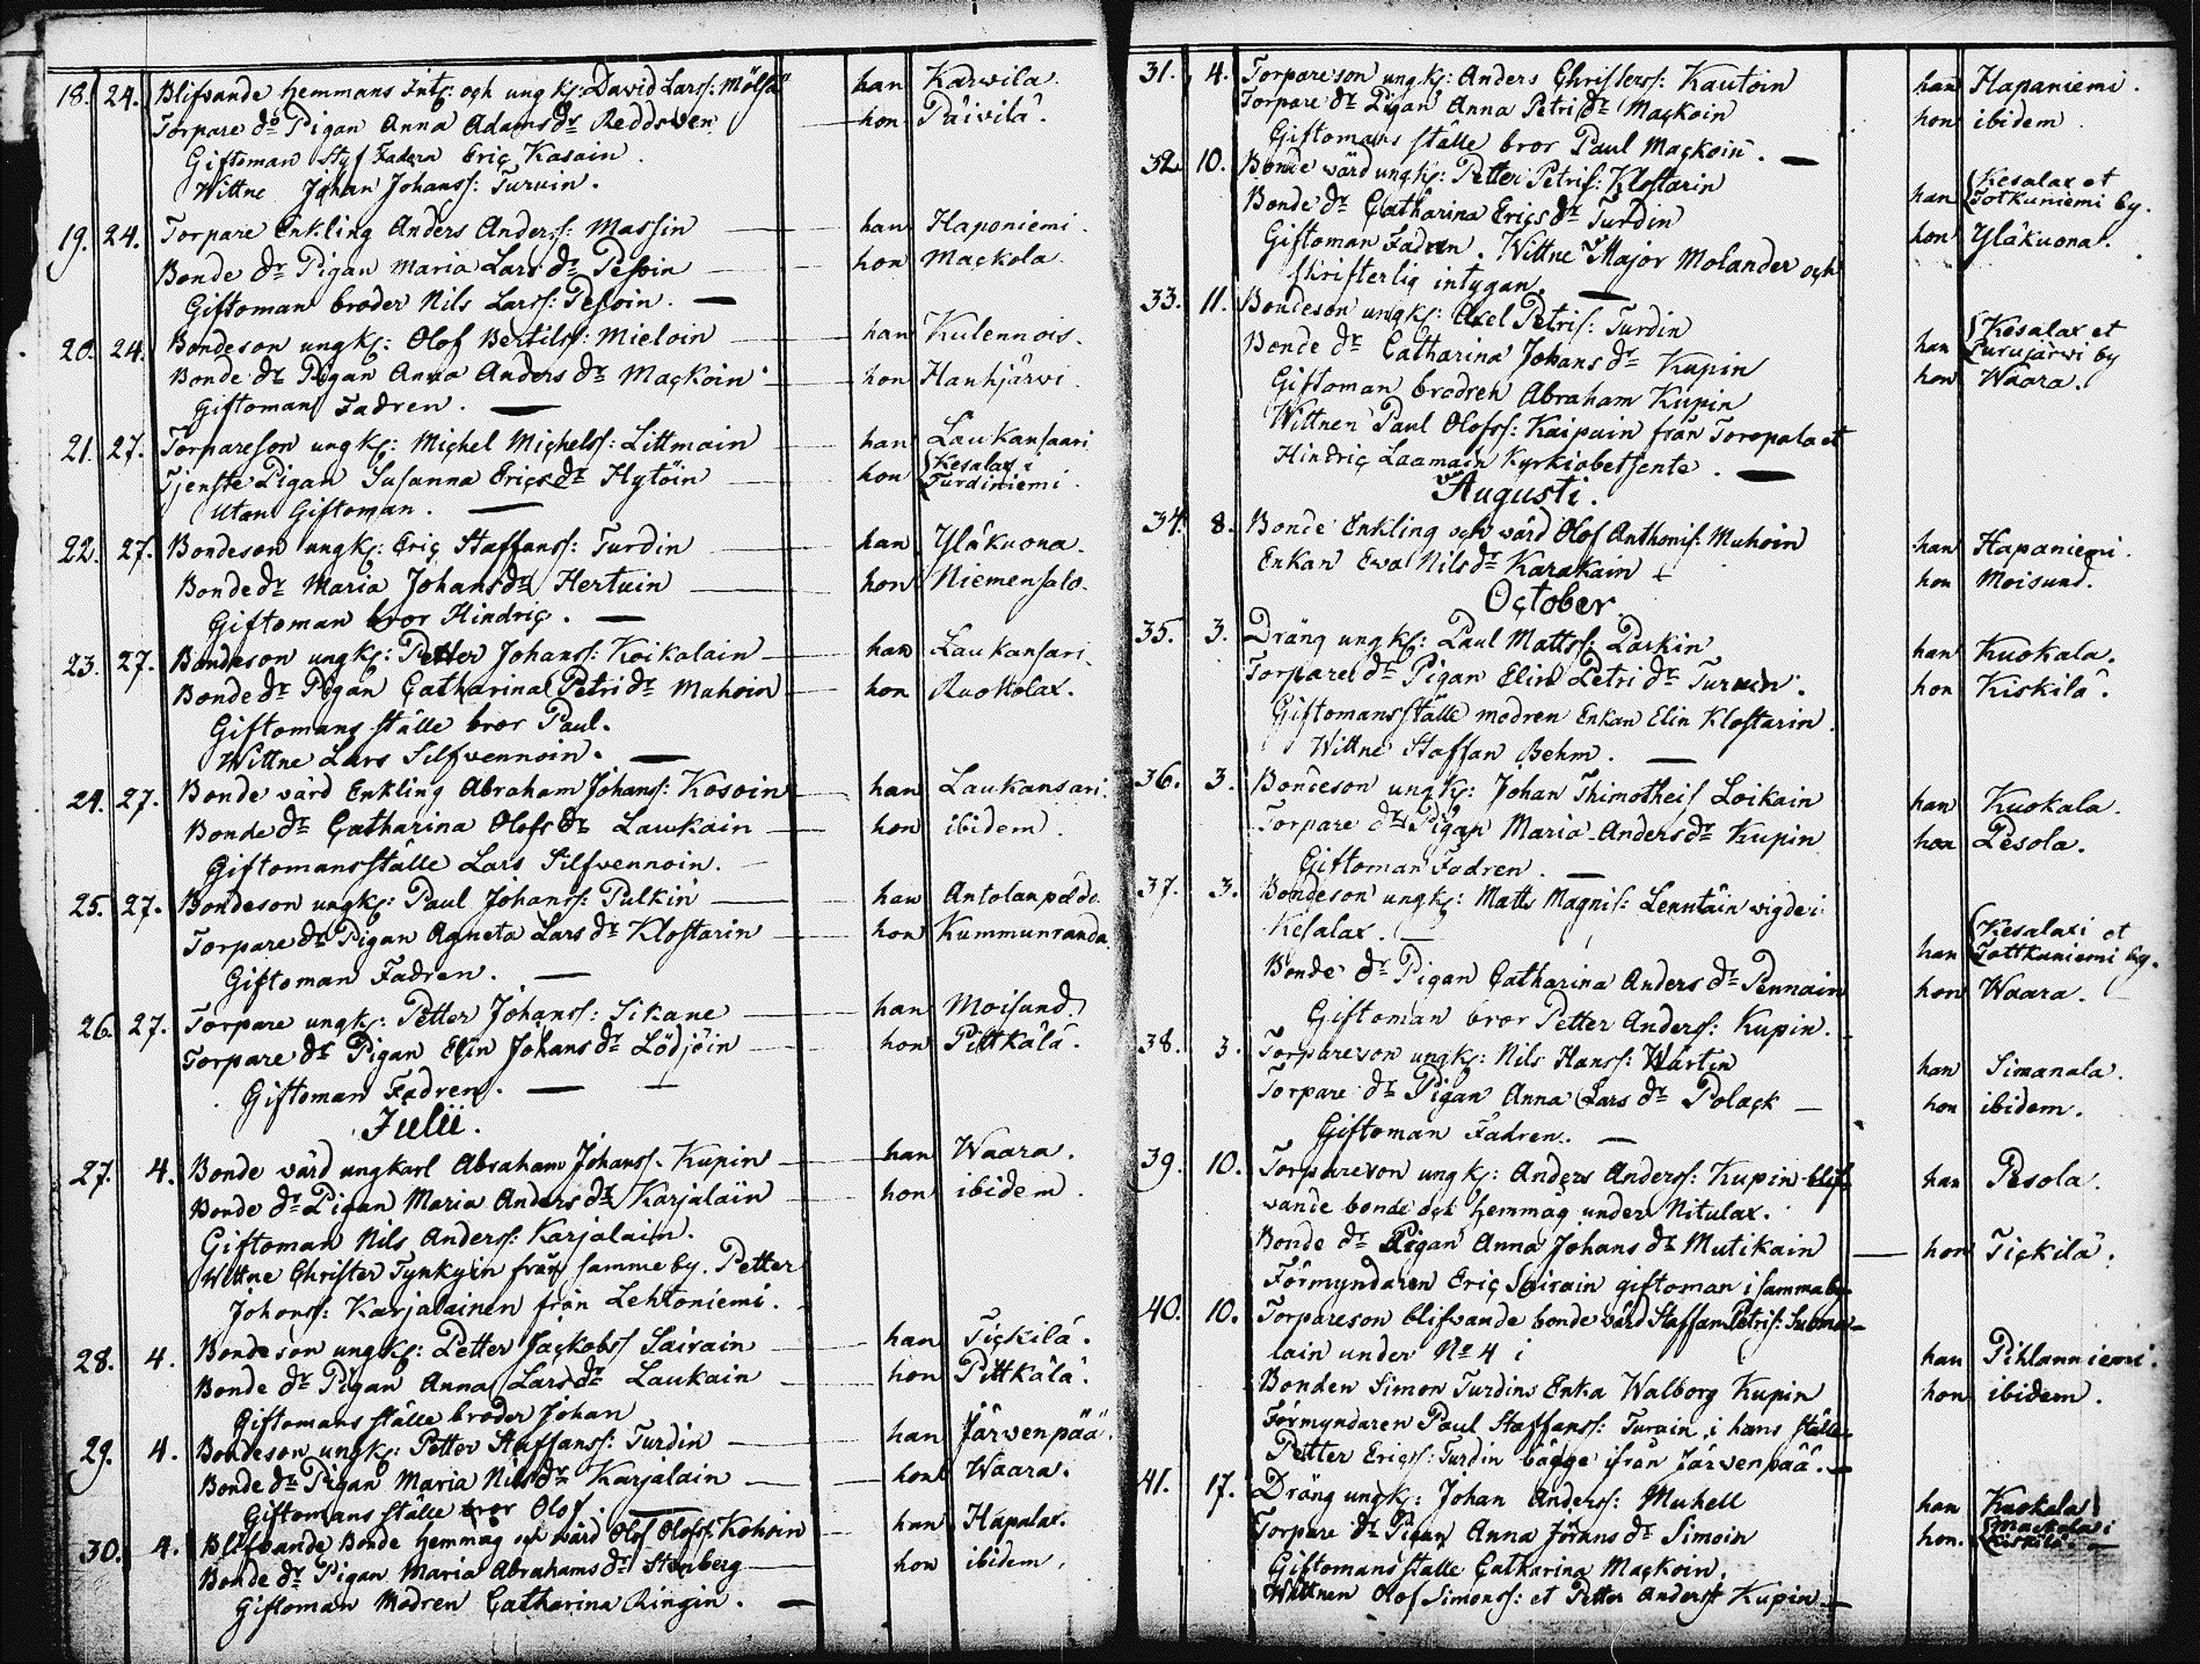 18. 24. Blifvande hemmans Int: och ungk: David Larss: Mölsä han Karvila.
Torpare dr Pigan Anna Adams dr Reddsven hon Päivilä.
Giftoman Styf Fadern Eric Kasain.
Wittne Johan Johanss: Turuin.
19. 24. Torpare Enkling Anders Anderss: Massin han Haponiemi.
Bonde dr Pigan Maria Lars dr Pesoin hon Mackola.
Giftoman broder Nils Larss: Pesoin.
20. 24. Bondeson ungk: Olof Bertilss: Mieloin han Kulennois.
Bonde dr Pigan Anna Anders dr Mackoin hon Hanhjärvi.
Giftoman Fadren.
21. 27. Torpareson ungk: Michel Michelss: Littmain han Laukansaari
Tjenste Pigan Susanna Erics dr Hytöin hon Kesalax i Turdiniemi.
Utan Giftoman.
22. 27. Bondeson ungk: Eric Staffanss: Turdin han Yläkuona.
Bonde dr Maria Johans dr Hertuin hon Niemensalo.
Giftoman bror Hindric.
23. 27. Bondeson ungk: Petter Johanss: Koikalain han Laukansari.
Bonde dr Pigan Catharina Petri dr Muhoin hon Ruokolax.
Giftomans ställe bror Paul.
Wittne Lars Silfvennoin.
24. 27. Bonde värd Enkling Abraham Johanss: Kosoin han Laukansari.
Bonde dr Catharina Olofs dr Laukain hon ibidem.
Giftomans ställe Lars Silfvennoin.
25. 27. Bondeson ungk: Paul Johanss: Pulkin han Antolanpåldo.
Torpare dr Pigan Agneta Lars dr Klostarin hon Kummunranda.
Giftoman Fadren.
26. 27. Torpare ungk: Petter Johanss: Sikane han Moisund.
Torpare dr Pigan Elin Johans dr Lödjöin hon Pittkälä.
Giftoman Fadren.
Julii.
27. 4. Bonde värd ungkarl Abraham Johanss: Kupin han Waara.
Bonde dr Pigan Maria Anders dr Karjalain hon ibidem.
Giftoman Nils Anderss: Karjalain.
Wittne Christer Tynkyin från samme by. Petter
Johanss: Karjalainen från Lehtoniemi.
28. 4. Bondeson ungk: Petter Jackobss Sairain han Tickilä.
Bonde dr Pigan Anna Lars dr Laukain hon Pittkälä.
Giftomans ställe broder Johan
29. 4. Bondeson ungk: Petter Staffanss: Turdin han Järvenpää.
Bonde dr Pigan Maria Nils dr Karjalain hon Waara.
Giftomans ställe bror Olof.
30. 4. Blifvande Bonde hemmag och värd Olof Olofss: Kohoin han Hapalax.
Bonde dr Pigan Maria Abrahams dr Stenberg hon ibidem.
Giftoman Modren Catharina Ringin.
31. 4. Torpareson ungk: Anders Christerss: Kautoin han Hapaniemi.
Torpare dr Pigan Anna Petri dr Mackoin hon ibidem.
Giftomans ställe bror Paul Mackoin.
32. 10. Bonde värd ungk: Petter Petris: Klostarin han Kesalax et Totkuniemi by.
Bonde dr Catharina Erics dr Turdin hon Yläkuona.
Giftoman Fadren. Wittne Major Molander och
skrifterlig intygan.
33. 11. Bondeson ungk: Axel Petris: Turdin han Kesalax et Purujärvi by
Bonde dr Catharina Johans dr Kupin hon Waara.
Giftoman brodren Abraham Kupin
Wittnen Paul Olofss: Kaipain från Toropala et
Hindric Laamain Kyrkiobetjente.
Augusti.
34. 8. Bonde Enkling och värd Olof Anthonis: Muhoin han Hapaniemi.
Enkan Ewa Nils dr Karakain hon Moisund.
October.
35. 3. Dräng ungk: Paul Mattss: Parkin han Kuokala.
Torpare dr Pigan Elin Petri dr Turuin. hon Kiskilä.
Giftomans ställe modren Enkan Elin Klostarin.
Wittne Staffan Behm.
36. 3. Bondeson ungk: Johan Thimotheis Loikain han Kuokala.
Torpare dr Pigan Maria Anders dr Kupin hon Pesola.
Giftoman Fadren.
37. 3. Bondeson ungk: Matts Magnis: Lenntäin vigde i
Kesalax. han Kesalaxi et Tottkuniemi by.
Bonde dr Pigan Catharina Anders dr Pennain hon Waara.
Giftoman bror Petter Anderss: Kupin.
38. 3. Torpareson ungk: Nils Hanss: Wartin han Simanala.
Torpare dr Pigan Anna Lars dr Polack hon ibidem.
Giftoman Fadren.
39. 10. Torpareson ungk: Anders Anderss: Kupin blif- han Pesola.
vande bonde och hemmag under Nitulax.
Bonde dr Pigan Anna Johans dr Mutikain hon Tickilä.
Förmyndaren Eric Sairain giftoman i samma by
40. 10. Torpareson blifvande bonde värd Staffan Petris: Suoma-
lain under No 4 i han Pihlanniemi.
Bonden Simon Turdins Enka Walborg Kupin hon ibidem.
Förmyndaren Paul Staffanss: Turain, i hans ställe
Petter Ericss: Turdin bägge ifrån Järvenpää.
41. 17. Dräng ungk: Johan Anderss: Muhell han Kuokala
Torpare dr Pigan Anna Jörans dr Simoin hon. Mackola i Kiskilä.
Giftomans ställe Catharina Mackoin.
Wittnen Olof Simonss: et Petter Anderss Kupin